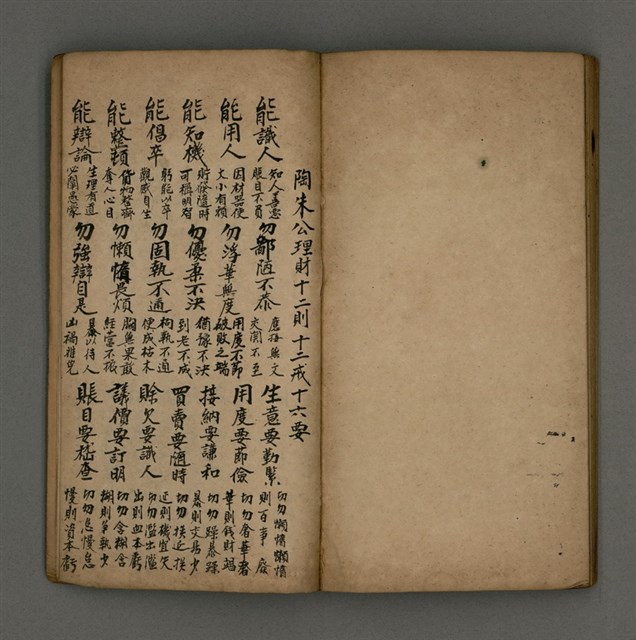 陶朱公理財十二則十二戒十六要
能識人 知人善惡賬目不負 勿鄙陋不泰 應務無文交関不至 生意要勤緊 切勿懶惰懶惰則百事廢
能用人 因材器便文小有頼 勿浮華無度 用度不節破敗之端 用度要節儉 切勿奢華奢華則錢財竭
能知機 貯發隨時可稱明智 勿優柔不決 猶豫不決到老不成 接納要謙和 切勿躁暴躁暴則交易少
能倡卒 躬能以卒觀感自生 勿固執不通 拘執不通使成枯木 買賣要隨時 切切挨近挨延則機宜欠
能整頓 貨物整齊奪人心目 勿懶惰畏煩 胸無果敢經營不振 賒欠要識人 切勿濫出濫出則血本虧
能辯論 生理有道必闡愚蒙 勿強辯自是 暴以待人出禍誰免 議價要訂明 切勿含糊含糊則爭執少
賬目要嵇查 切勿怠慢怠慢則資本虧